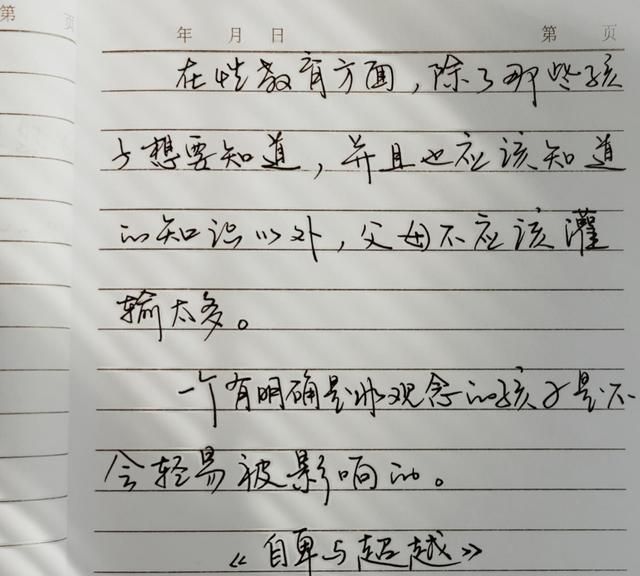 第 页
年 月 日 第 页
在性教育方面，除了那些孩
子想要知道，并且也应该知道
的知识以外，父母不应该灌
输太多。
一个有明确是非观念的孩子是不
会轻易被影响的。
《自卑与超越》